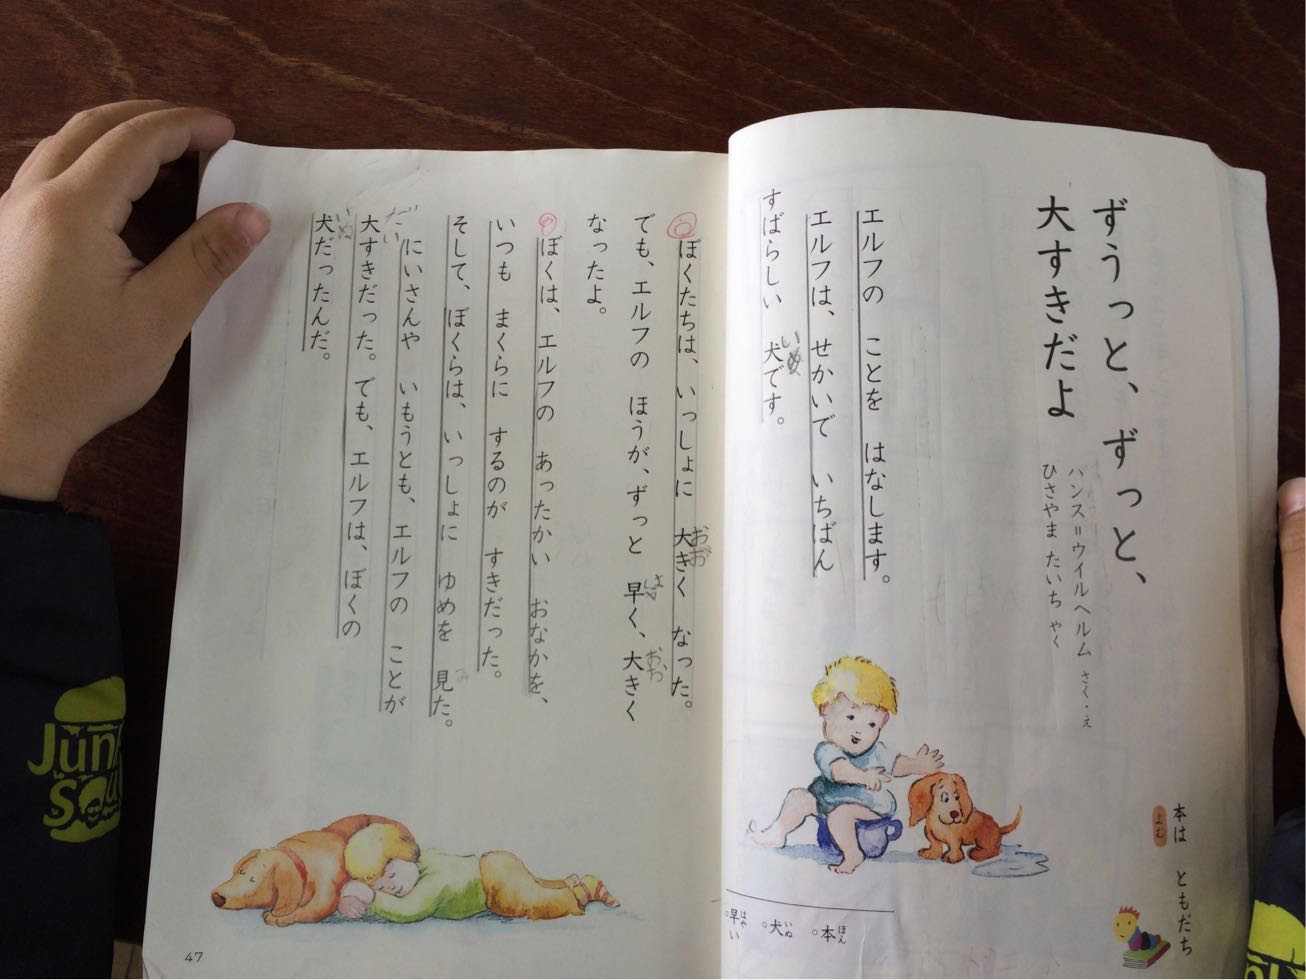 ずうっと、ずっと、
大すきだよ
ハンス=ウイルヘルム さく・え
ひさやま たいち やく
本は ともだち
よむ
エルフの ことを はなします。
エルフは、せかいで いちばん
すばらしい 犬です。
いぬ
本 ほん
犬 いぬ
早い はや
ぼくたちは、いっしょに 大きく なった。
おお
でも、エルフの ほうが、ずっと 早く、大きく
おお
なったよ。
ぼくは、エルフの あったかい おなかを、
いつも まくらに するのが すきだった。
そして、ぼくらは、いっしょに ゆめを 見た。
み
にいさんや いもうとも、エルフの ことが
大すきだった。でも、エルフは、ぼくの
だい
犬だったんだ。
いぬ
47